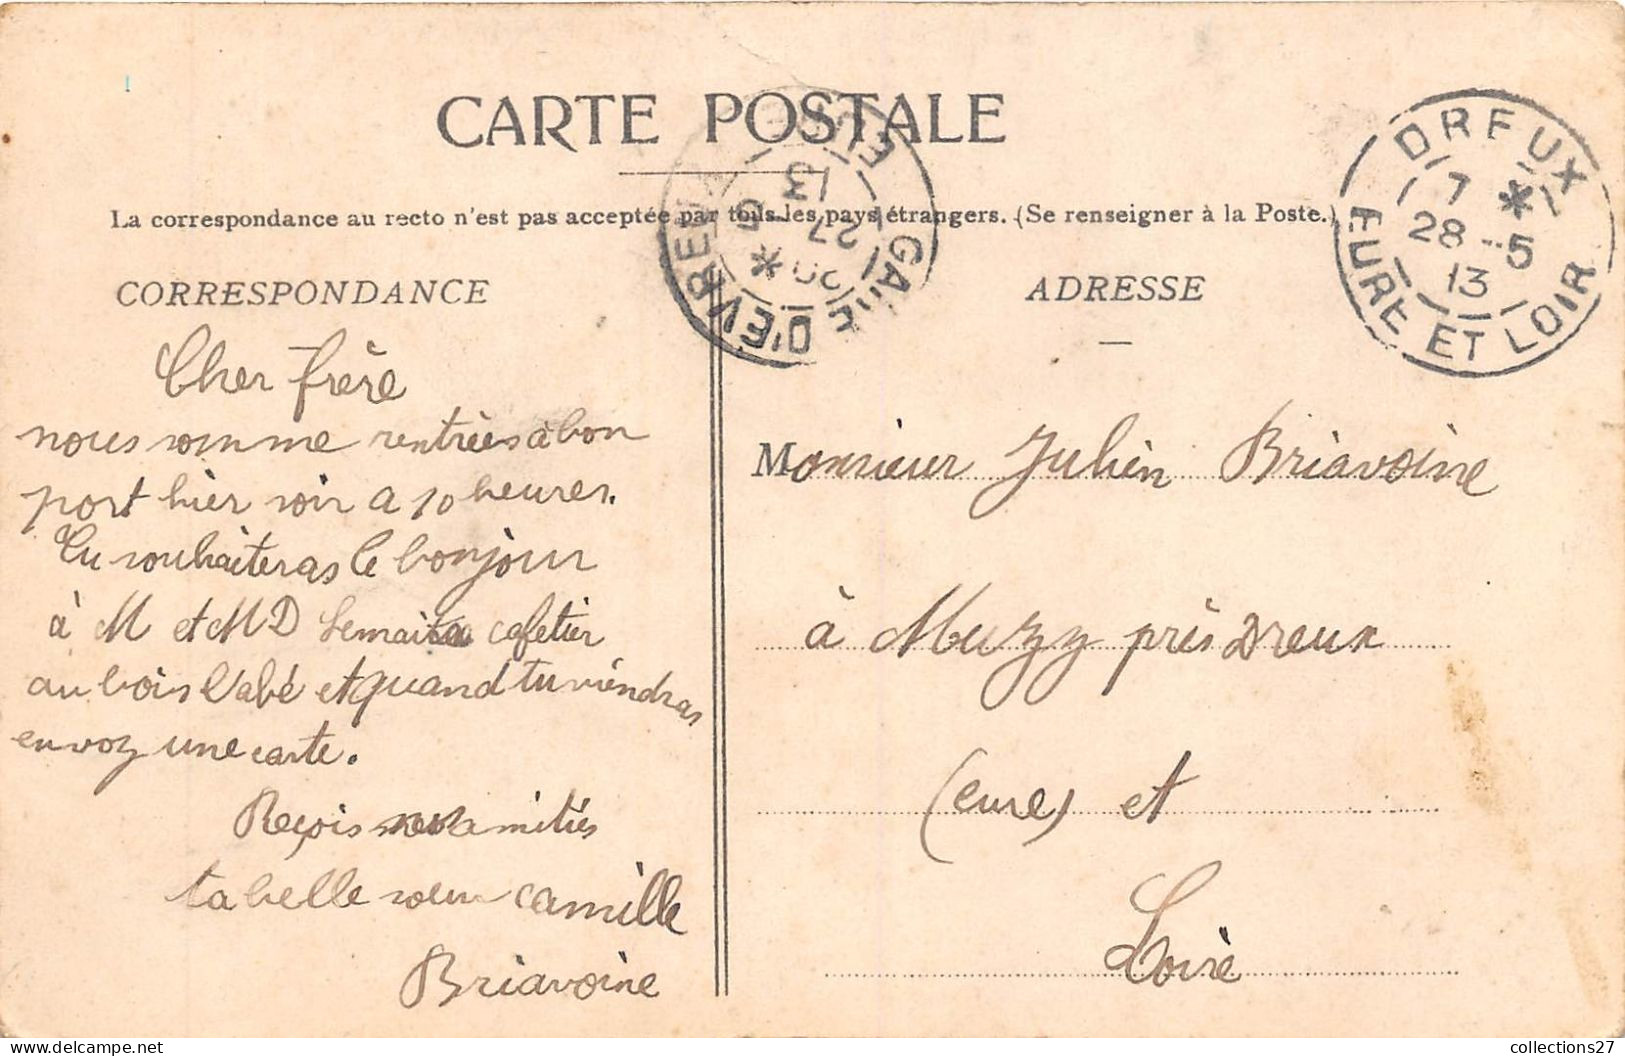 CARTE POSTALE
La correspondance au recto n'est pas acceptée par tous les pays étrangers. (Se renseigner à la Poste.)
GARE D'EVREUX EURE
20 * 27 - 5
13
DREUX
7 *
28 - 5
13
EURE ET LOIR
CORRESPONDANCE
Cher frère
nous somme rentrées à bon
port hier soir a 10 heures.
Tu souhaiteras le bonjour
à M et MD Lemaitre cafetier
au bois l'abé et quand tu viendras
envoz une carte.
Reçois nos amitiés
ta belle soeur camille
Briavoine
ADRESSE
Monsieur Julien Briavoine
à Muzy près Dreux
(eure) et
Loire
collections27